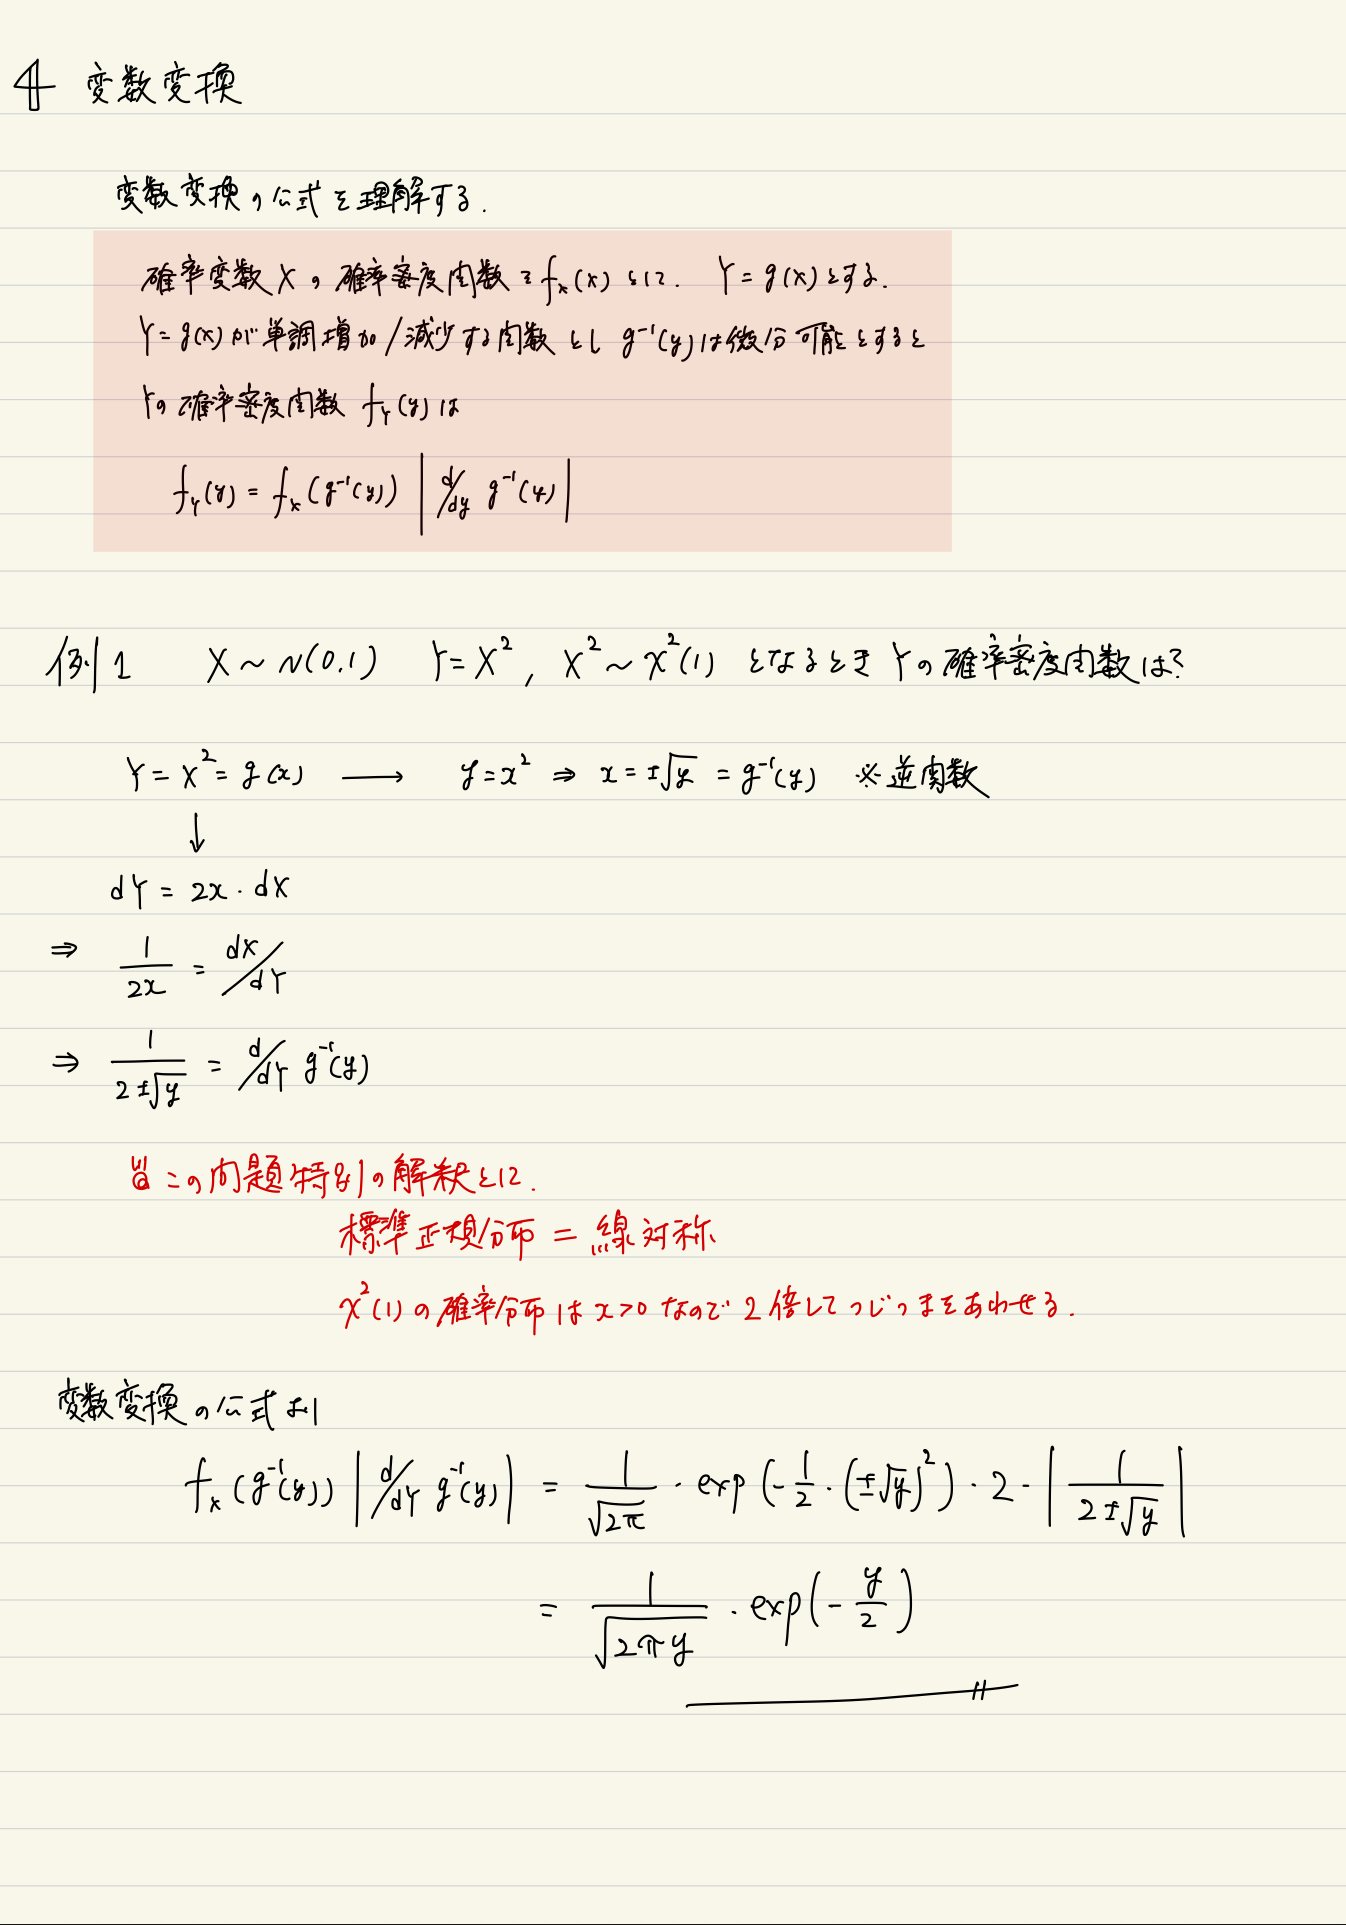 4 変数変換
変数変換の公式を理解する.
確率変数Xの確率密度関数をf_x(x)として. Y=g(x)とする.
Y=g(x)が単調増加/減少する関数とし g⁻¹(y)は微分可能とすると
Yの確率密度関数 f_Y(y)は
f_Y(y) = f_x(g⁻¹(y)) | d/dy g⁻¹(y) |
例1 X ~ N(0.1) Y=X², X² ~ χ²(1) となるとき Yの確率密度関数は?
Y = X² = g(x) → y = x² ⇒ x = ±√y = g⁻¹(y) ※逆関数
↓
dY = 2x · dX
⇒ 1/2x = dX/dY
⇒ 1/2±√y = d/dY g⁻¹(y)
この問題特別の解釈として.
標準正規分布 = 線対称
χ²(1)の確率分布は x>0 なので 2倍してつじつまをあわせる.
変数変換の公式より
f_x(g⁻¹(y)) | d/dY g⁻¹(y) | = 1/√2π · exp(-1/2 · (±√y)²) · 2 · | 1/2±√y |
= 1/√2πy · exp(-y/2)